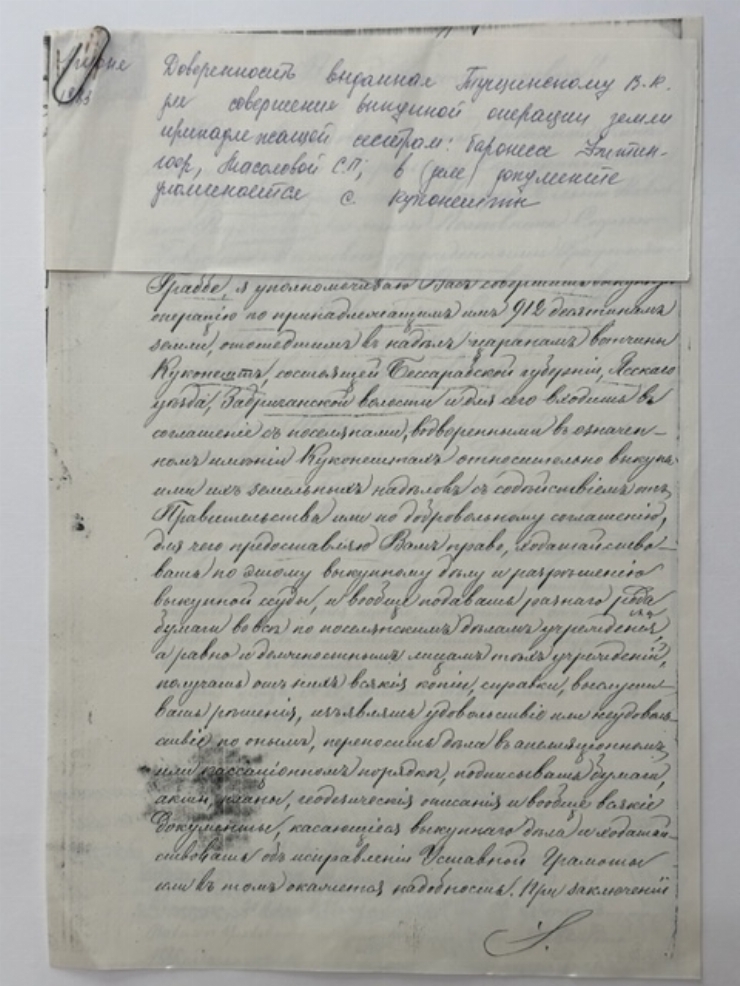 Доверенность выданная Тучинскому В.К.
для совершения выкупной операции земли
принадлежащей сестрам: баронессе
Масоловой С.П; в (деле) документе
упоминается с. Куконештий
Граббе, я уполномочиваю Васъ совершить выкупную
операцію по принадлежащимъ имъ 912 десятинамъ
земли, отошедшимъ въ надѣлъ царанамъ вотчины
Куконешты, состоящей Бессарабской губерніи, Ясскаго
уѣзда, Забричанской волости и для сего входить въ
соглашеніе съ поселянами, водворенными въ означен-
номъ имѣніи Куконештахъ относительно выкупа
ими ихъ земельныхъ надѣловъ съ содѣйствіемъ отъ
Правительства или по добровольному соглашенію,
для чего предоставляю Вамъ право, ходатайство-
вать по этому выкупному дѣлу и разрѣшенію
выкупной ссуды, и вообще подавать разнаго рода
бумаги во всѣ по поселянскимъ дѣламъ учрежденія,
а равно и должностнымъ лицамъ тѣхъ учрежденій,
получать отъ нихъ всякія копіи, справки, выслуши-
вать рѣшенія, изъявлять удовольствіе или неудоволь-
ствіе по онымъ, переносить дѣла въ апелляціонномъ
или кассаціонномъ порядкѣ, подписывать бумаги,
акты, планы, геодезическія описанія и вообще всякіе
документы, касающіеся выкупнаго дѣла и ходатай-
ствовать объ исправленіи Уставной Грамоты
если въ томъ окажется надобность. При заключеніи